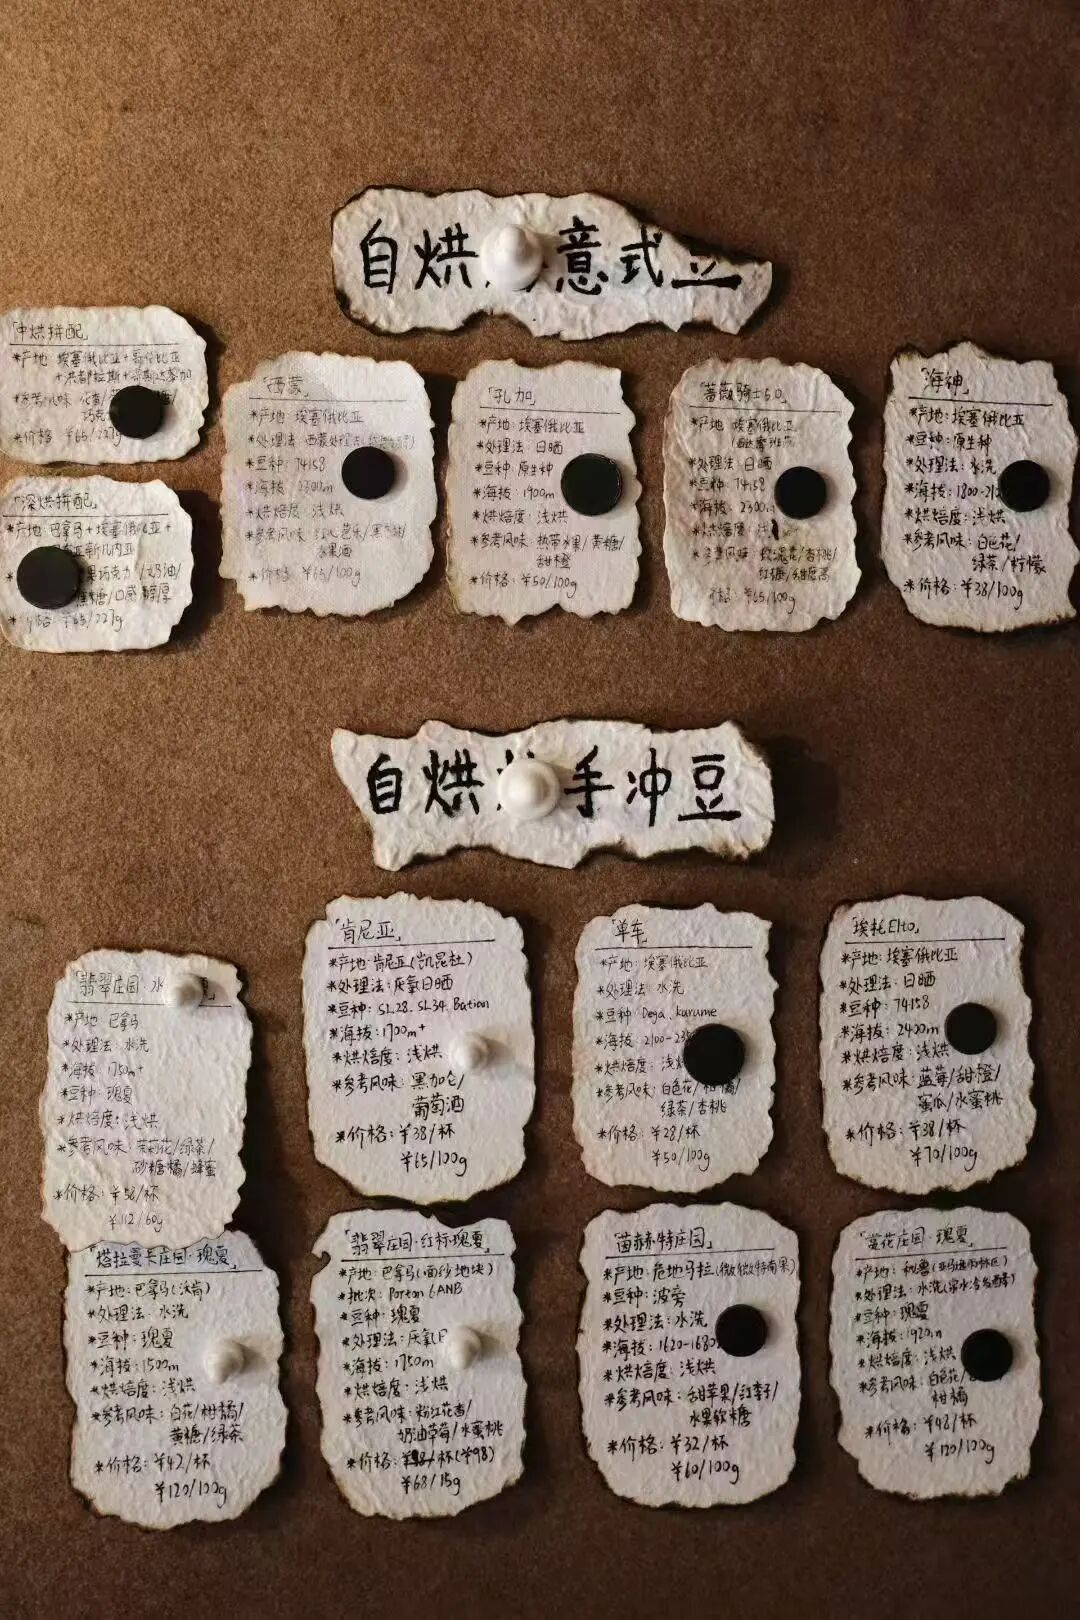 自烘 意式豆
「中烘拼配」
*产地 埃塞俄比亚+哥伦比亚
+洪都拉斯+哥斯达黎加
*参考风味 花香/
巧克
*价格 ¥66/227g
「深烘拼配」
*产地:巴拿马+埃塞俄比亚+
新几内亚
果巧克力/奶油/
焦糖/口感醇厚
¥65/227g
「西蒙」
*产地:埃塞俄比亚
*处理法:西蒙处理法
*豆种:74158
*海拔:2300m
*烘焙度:浅烘
*参考风味:
水果酒
*价格:¥65/100g
「孔加」
*产地:埃塞俄比亚
*处理法:日晒
*豆种:原生种
*海拔:1900m
*烘焙度:浅烘
*参考风味:热带水果/黄糖/
甜橙
*价格:¥50/100g
「蔷薇骑士6.0」
*产地:埃塞俄比亚
*处理法:日晒
*豆种:74158
*海拔:2300m
*烘焙度:浅
*参考风味:玫瑰花/杏桃/
红糖/甜感高
价格:¥65/100g
「海神」
*产地:埃塞俄比亚
*豆种:原生种
*处理法:水洗
*海拔:1800-210
*烘焙度:浅烘
*参考风味:白色花/
绿茶/柠檬
*价格:¥38/100g
自烘 手冲豆
「翡翠庄园·水
*产地:巴拿马
*处理法:水洗
*海拔:1750m+
*豆种:瑰夏
*烘焙度:浅烘
*参考风味:茉莉花/绿茶/
砂糖橘/蜂蜜
*价格:¥58/杯
¥112/60g
「肯尼亚」
*产地:肯尼亚(凯昆杜)
*处理法:厌氧日晒
*豆种:SL28.SL34.Batian
*海拔:1700m+
*烘焙度:浅烘
*参考风味:黑加仑/
葡萄酒
*价格:¥38/杯
¥65/100g
「单车」
*产地:埃塞俄比亚
*处理法:水洗
*豆种:Dega、kurume
*海拔:2100-23
*烘焙度:浅烘
*参考风味:白色花/柑橘/
绿茶/杏桃
*价格:¥28/杯
¥50/100g
「埃托Elto」
*产地:埃塞俄比亚
*处理法:日晒
*豆种:74158
*海拔:2400m
*烘焙度:浅烘
*参考风味:蓝莓/甜橙/
蜜瓜/水蜜桃
*价格:¥38/杯
¥70/100g
「塔拉曼卡庄园·瑰夏」
*产地:巴拿马(沃肯)
*处理法:水洗
*豆种:瑰夏
*海拔:1500m
*烘焙度:浅烘
*参考风味:白花/柑橘/
黄糖/绿茶
*价格:¥42/杯
¥120/100g
「翡翠庄园·红标·瑰夏」
*产地:巴拿马(面纱地块)
*批次:Porton 6ANB
*豆种:瑰夏
*处理法:厌氧日
*海拔:1750m
*烘焙度:浅烘
*参考风味:粉红花香/
奶油草莓/水蜜桃
*价格: /杯(¥98)
¥68/15g
「茵赫特庄园」
*产地:危地马拉(微微特南果)
*豆种:波旁
*处理法:水洗
*海拔:1620-1680
*烘焙度:浅烘
*参考风味:甜苹果/红李子/
水果软糖
*价格:¥32/杯
¥60/100g
「赏花庄园·瑰夏」
*产地:秘鲁
*处理法:水洗
*豆种:瑰夏
*海拔:1920m
*烘焙度:浅烘
*参考风味:白色花/
柑橘
*价格:¥48/杯
¥120/100g